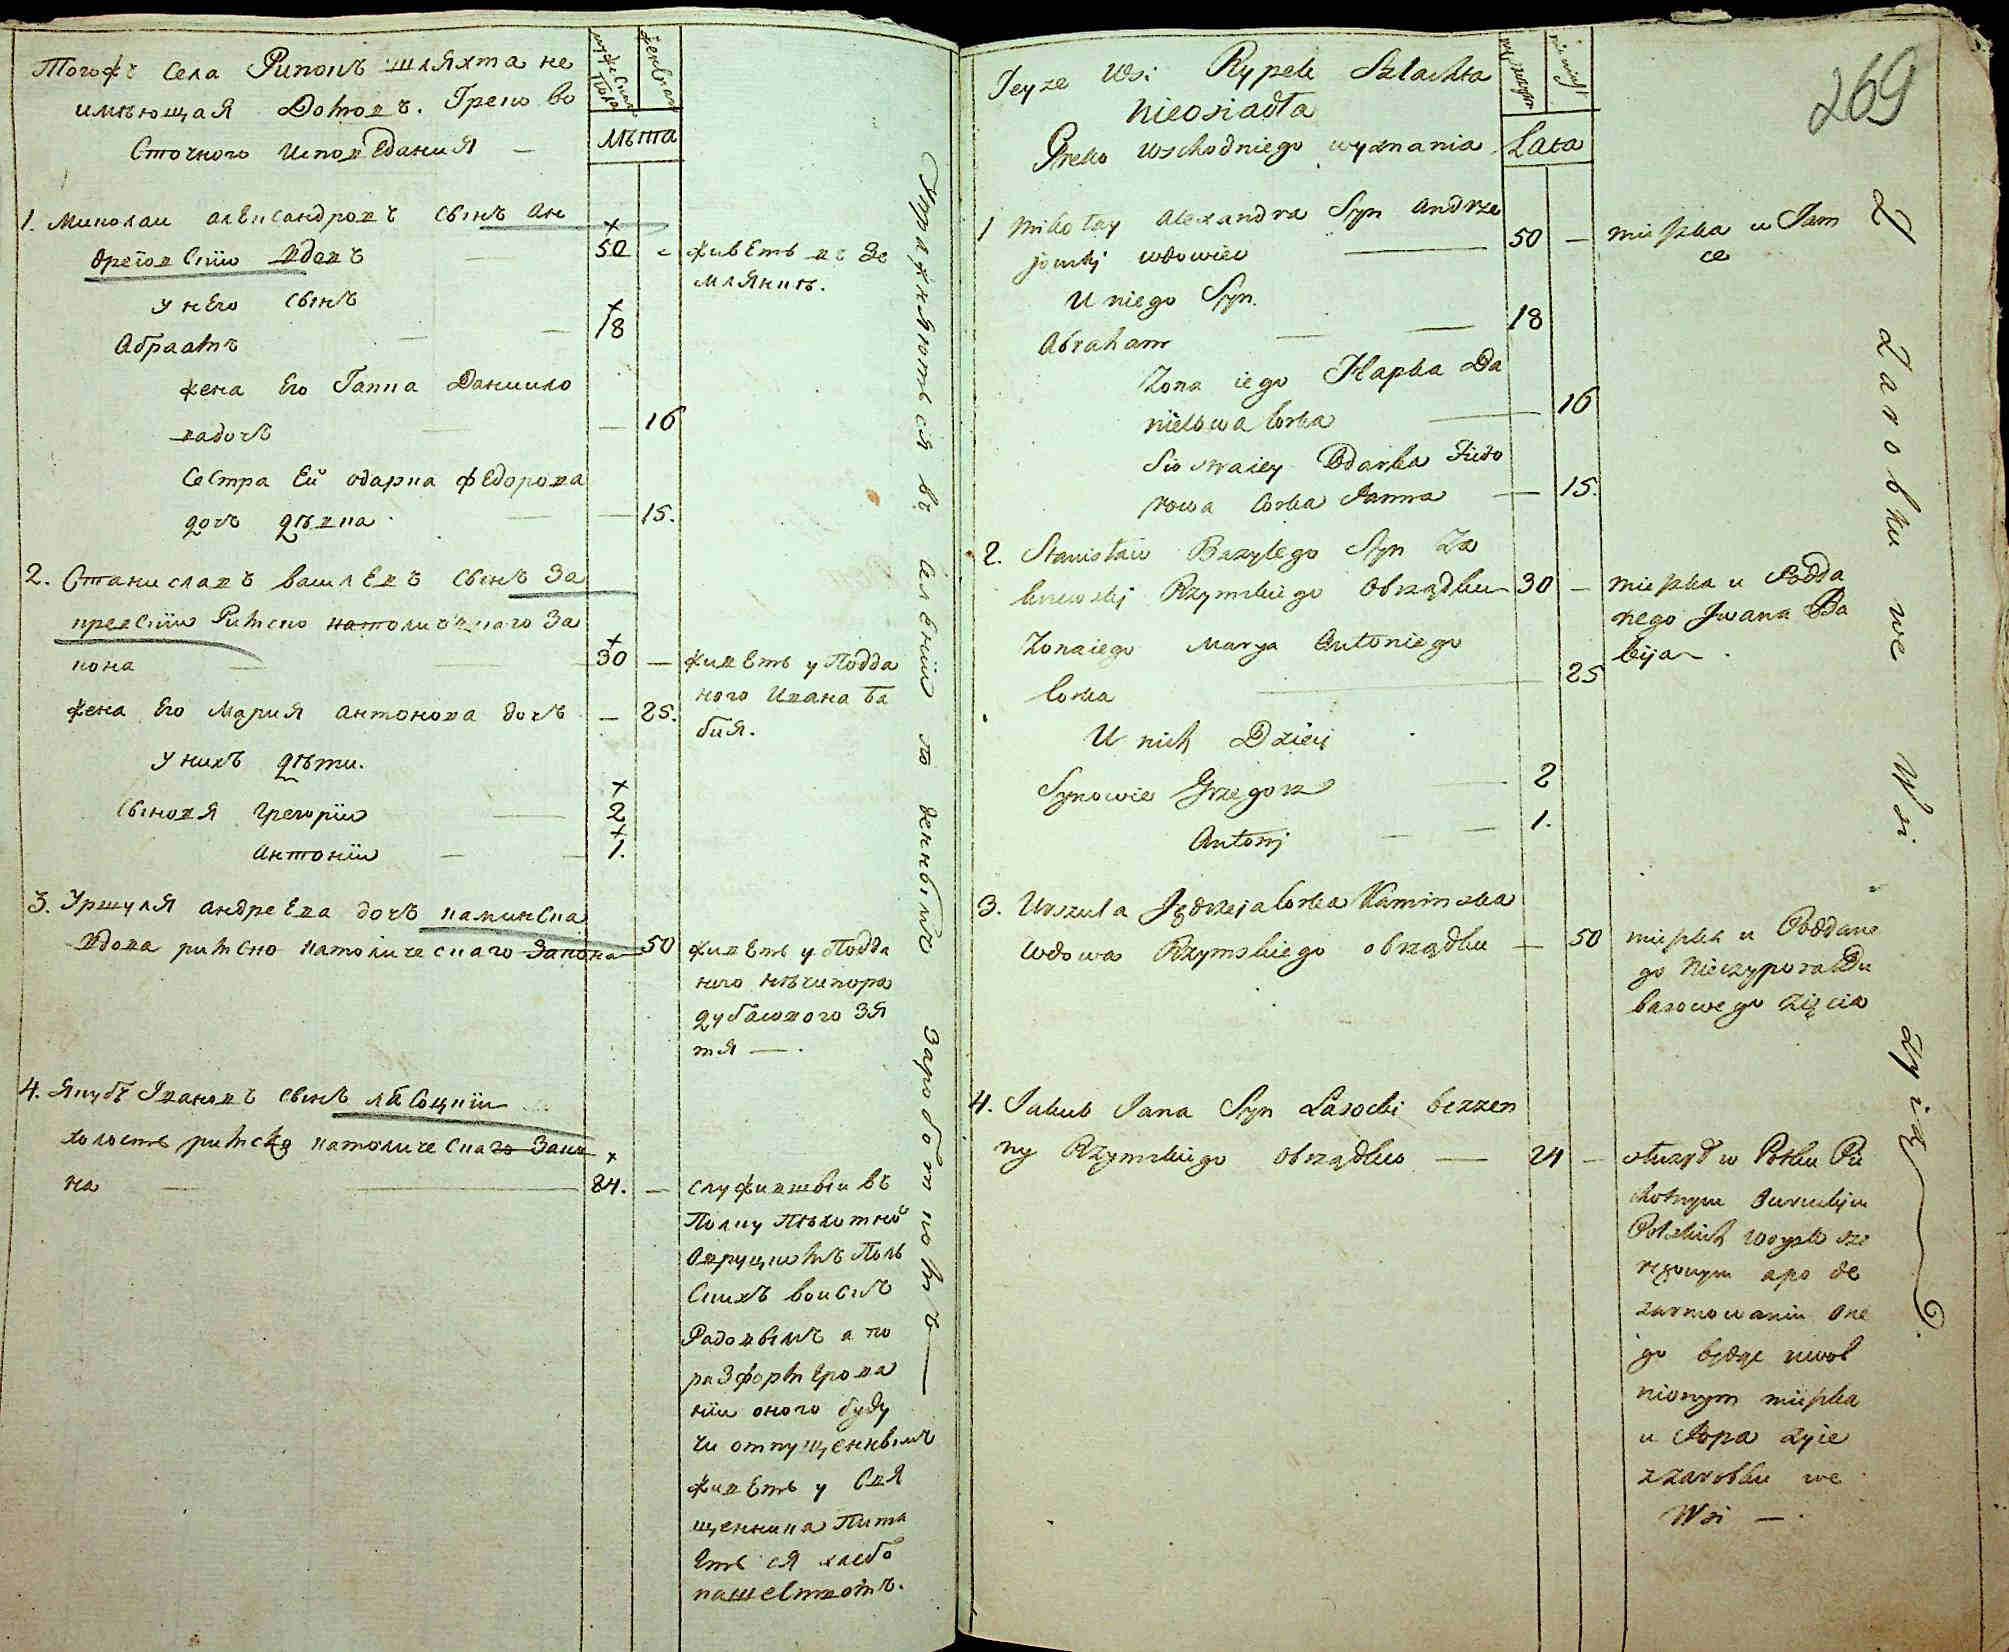 Тогожъ села Рипокъ шляхта не
имѣющая Домовъ. Греко во
сточного исповѣдания —
мужеска пола
женска
Лѣта
1. Миколаи александровъ сынъ ан
дрѣіовскіи вдовъ 50 живетъ въ зе
млянкѣ.
у него сынъ
Абраамъ 18
жена его Гапка Данило
вадочь 16
сестра ей одарка федорова
дочь дѣвка 15.
2. Станиславъ василевъ сынъ за
кревскіи Римско католическаго за
кона 30 — живетъ у Подда
ного Ивана ба
бия.
жена его Мария антонова дочь — 25.
у нихъ дѣти.
сыновя Григоріи 2
антоніи 1.
3. Уршуля андреева дочь каминска
вдова римско католическаго закона 50 живетъ у Подда
ного нѣчипора
дубасового зя
тя —.
4. Якубъ Івановъ сынъ лясоцкіи
холостъ римско католическаго зако
на 24. — служившіи въ
Полку Пѣхотно
Овруцкомъ Поль
скихъ воискъ
Радовымъ а по
разформирова
ніи оного буду
чи отпущеннымъ
живетъ у свя
щенника Пита
етъ ся хлебо
пашествомъ.
Упражняются въ селеніи по деннымъ Заработкомъ
269
Teyze Wsi Rypek Szlachta
nieosiadła
Greko wschodniego wyznania
Lata
1 Mikołay Alexandra Syn Andrze
jowskj wdowiec 50 — mieszka w Jam
ce
U niego Syn.
Abraham 18
Zona iego Hapka Da
nielowa Corka 16
Siostraiey Odarka Fiedo
rowa Corka Panna — 15.
2. Stanisław Bazylego Syn Za
krewskj Rzymskiego Obrządku 30 — mieszka u Podda
nego Jwana Ba
bija.
Zonaiego Marya Antoniego
Corka 25
U nich Dzieci
Synowie Grzegorz 2
Antonj 1.
3. Urszula Jędrzeja Corka Kaminska
wdowa Rzymskiego obrządku — 50 mieszka u Poddane
go Nieczypora Du
basowego Zięcia
4. Jakub Jana Syn Lasocki bezzen
ny Rzymskiego Obrządku — 24 — służył w Połku Pie
chotnym Owruckjm
Polskich woysk sze
regowym a po de
zarmowaniu one
go będąc uwol
nionym mieszka
u Popa żyie
z zarobku we
Wsi —.
Z Zarobku we Wsi żyią